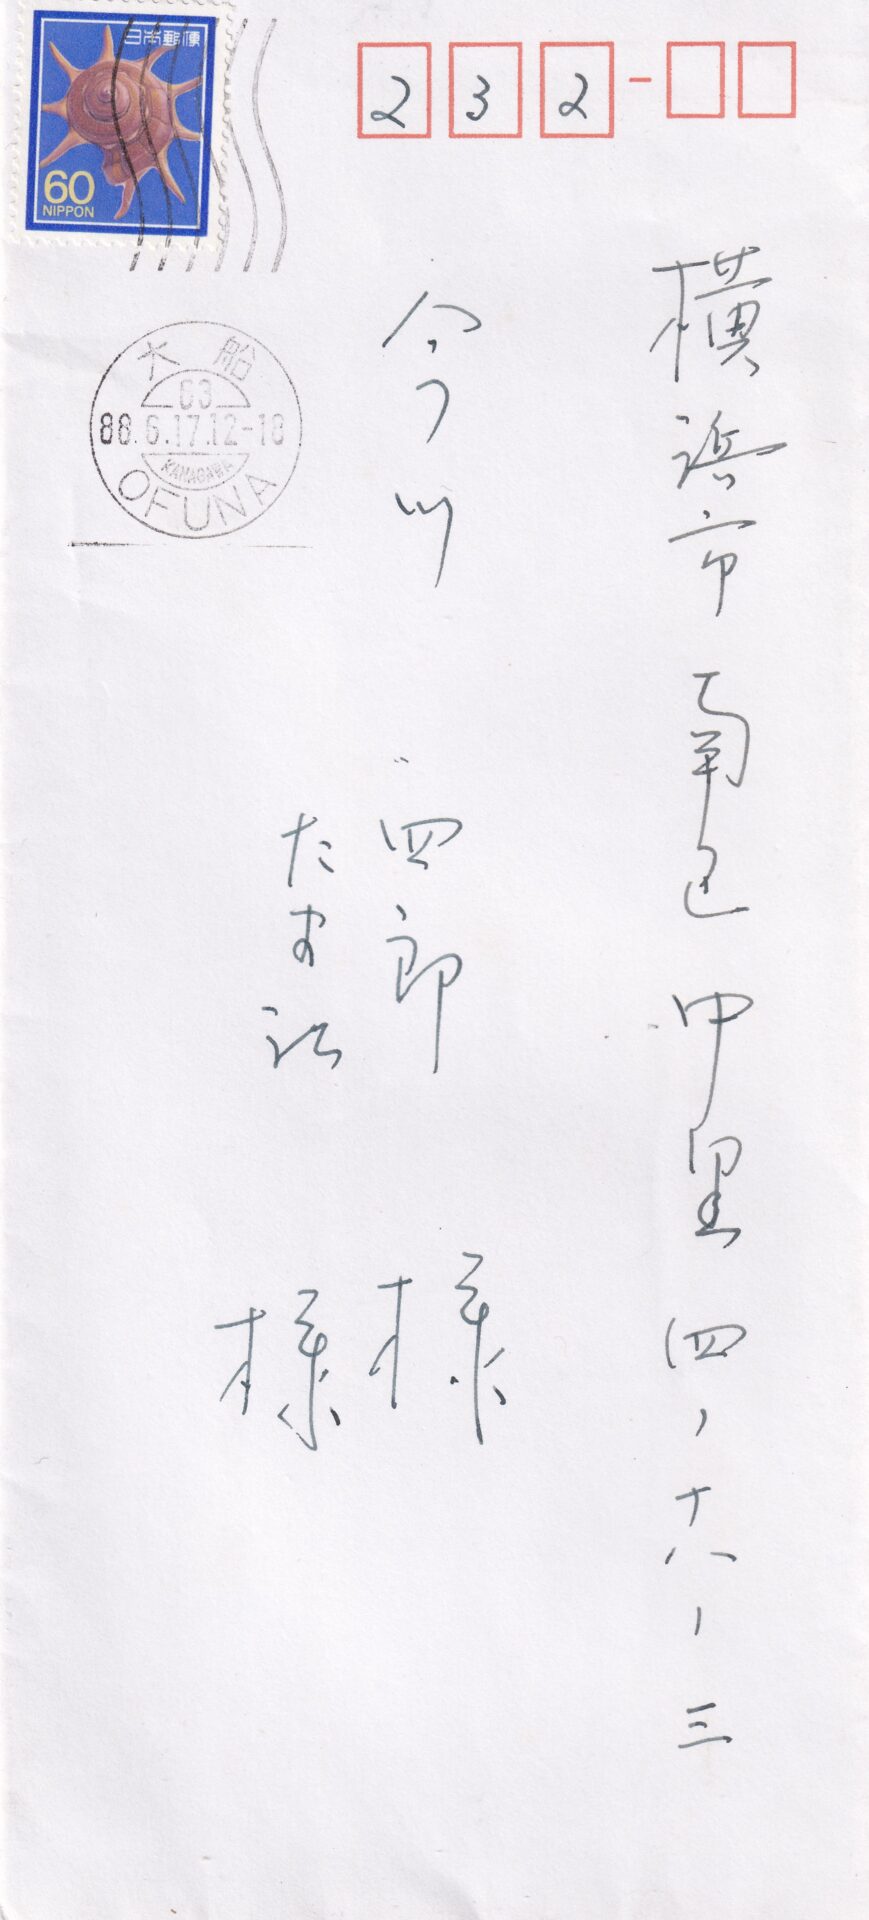 日本郵便
60
NIPPON
232-
大船
63
88.6.17.12-18
KANAGAWA
OFUNA
横浜市南区中里四ノ十六ノ三
今川 四郎 様
たま江 様